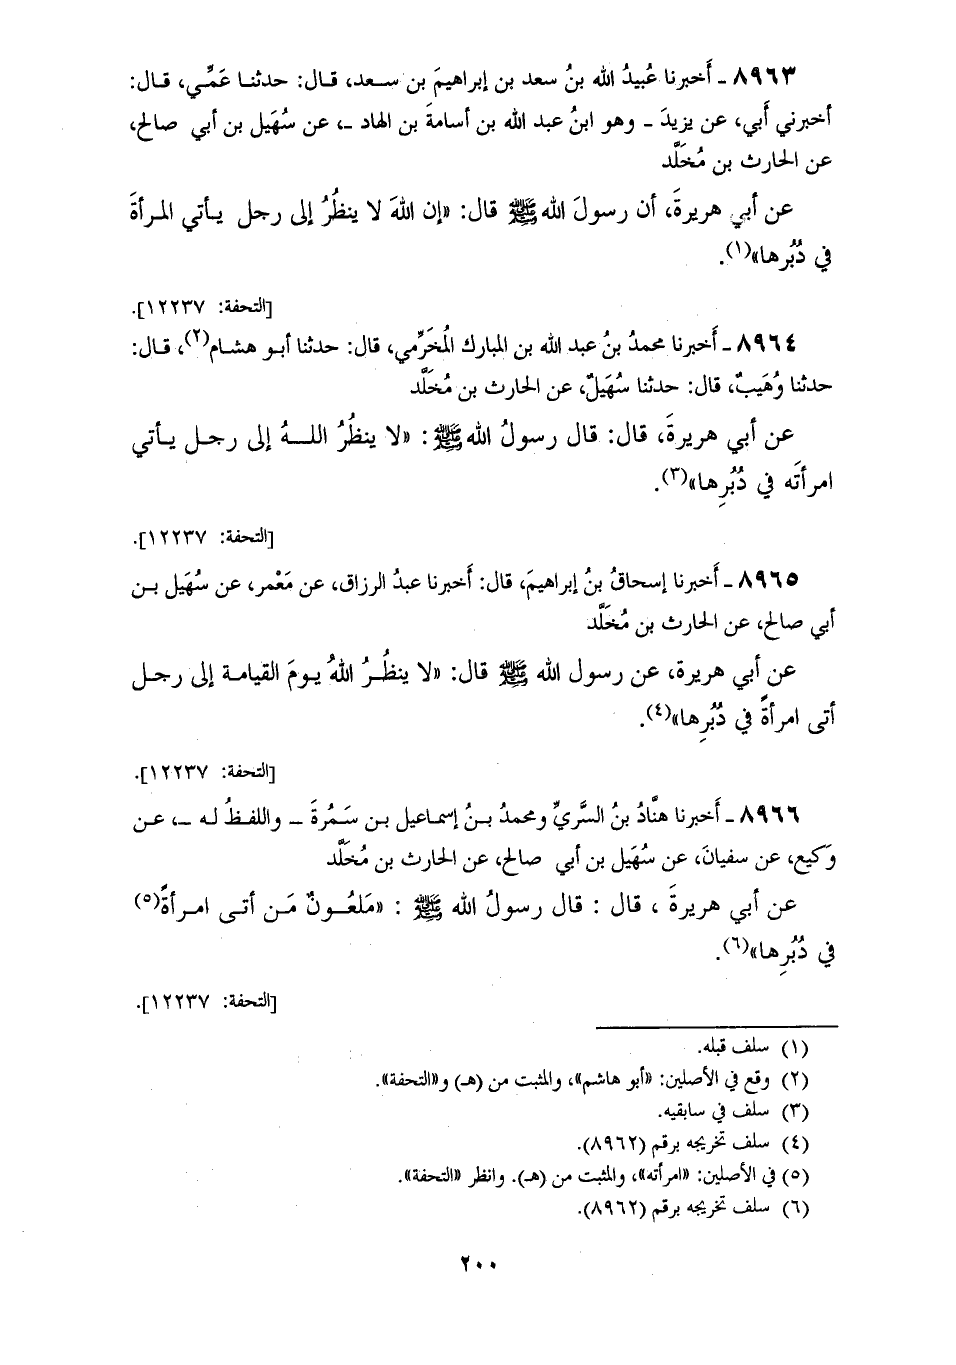 ٨٩٦٣ ـ أَخبرنا عُبيدُ الله بنُ سعد بن إبراهيمَ بن سـعد، قـال: حدثنـا عَمِّي، قـال:
أخبرني أَبي، عن يزيدَ ـ وهو ابنُ عبد الله بن أسامةَ بن الهاد ـ، عن سُهَيل بن أبي صالح،
عن الحارث بن مُخَلَّد
عن أبي هريرةَ، أن رسولَ الله ﷺ قال: «إن اللهَ لا ينظُرُ إلى رجل يـأتي المـرأةَ
في دُبُرها»(١).
[التحفة: ١٢٢٣٧].
٨٩٦٤ ـ أَخبرنا محمدُ بنُ عبد الله بن المبارك المُخَرِّمي، قال: حدثنا أبـو هشـام(٢)، قـال:
حدثنا وُهَيبٌ، قال: حدثنا سُهَيلٌ، عن الحارث بن مُخَلَّد
عن أبي هريرةَ، قال: قال رسولُ الله ﷺ: «لا ينظُرُ اللـــهُ إلى رجـل يـأتي
امرأتَه في دُبُرِها»(٣).
[التحفة: ١٢٢٣٧].
٨٩٦٥ ـ أَخبرنا إسحاقُ بنُ إبراهيمَ، قال: أَخبرنا عبدُ الرزاق، عن مَعْمر، عن سُهَيل بـن
أبي صالح، عن الحارث بن مُخَلَّد
عن أبي هريرة، عن رسول الله ﷺ قال: «لا ينظُـرُ اللهُ يـومَ القيامـة إلى رجـل
أتى امرأةً في دُبُرِها»(٤).
[التحفة: ١٢٢٣٧].
٨٩٦٦ ـ أَخبرنا هنَّادُ بنُ السَّريِّ ومحمدُ بـنُ إسمـاعيل بـن سَـمُرةَ ـ واللفـظُ لـه ـ، عـن
وَكيع، عن سفيانَ، عن سُهَيل بن أبي صالح، عن الحارث بن مُخَلَّد
عن أبي هريرةَ ، قال : قال رسولُ الله ﷺ : «مَلعُـــونٌ مَـن أتـى امـرأةً(٥)
في دُبُرِها»(٦).
[التحفة: ١٢٢٣٧].
(١) سلف قبله.
(٢) وقع في الأصلين: «أبو هاشم»، والمثبت من (هـ) و«التحفة».
(٣) سلف في سابقيه.
(٤) سلف تخريجه برقم (٨٩٦٢).
(٥) في الأصلين: «امرأته»، والمثبت من (هـ). وانظر «التحفة».
(٦) سلف تخريجه برقم (٨٩٦٢).
٢٠٠